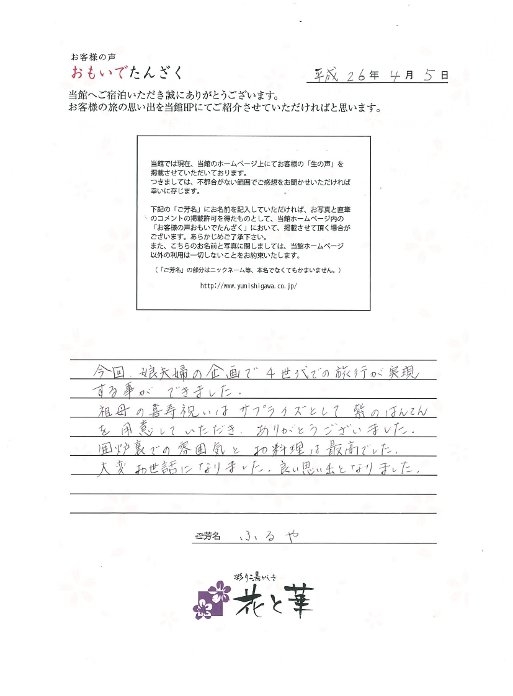 お客様の声
おもいでたんざく
平成 26年 4月 5日
当館へご宿泊いただき誠にありがとうございます。
お客様の旅の思い出を当館HPにてご紹介させていただければと思います。
当館では現在、当館のホームページ上にてお客様の「生の声」を
掲載させていただいております。
つきましては、不都合がない範囲でご感想をお聞かせいただければ
幸いに存じます。
下記の「ご芳名」にお名前を記入していただければ、お写真と直筆
のコメントの掲載許可を得たものとして、当館ホームページ内の
「お客様の声おもいでたんざく」において、掲載させて頂く場合が
ございます。あらかじめご了承下さい。
また、こちらのお名前と写真に関しましては、当館ホームページ
以外の利用は一切しないことをお約束いたします。
(「ご芳名」の部分はニックネーム等、本名でなくてもかまいません。)
http://www.yunishigawa.co.jp/
今回、娘夫婦の企画で4世代での旅行が実現
する事ができました。
祖母の喜寿祝いはサプライズとして紫のはんてん
を用意していただき、ありがとうございました。
囲炉裏での雰囲気とお料理は最高でした。
大変お世話になりました。良い思い出となりました。
ご芳名 ふるや
花と華